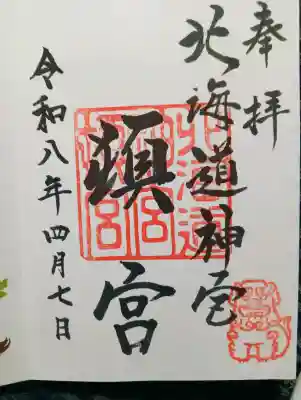 奉拝
北海道神宮
頓宮
令和八年四月七日
北海道
神宮
頓宮